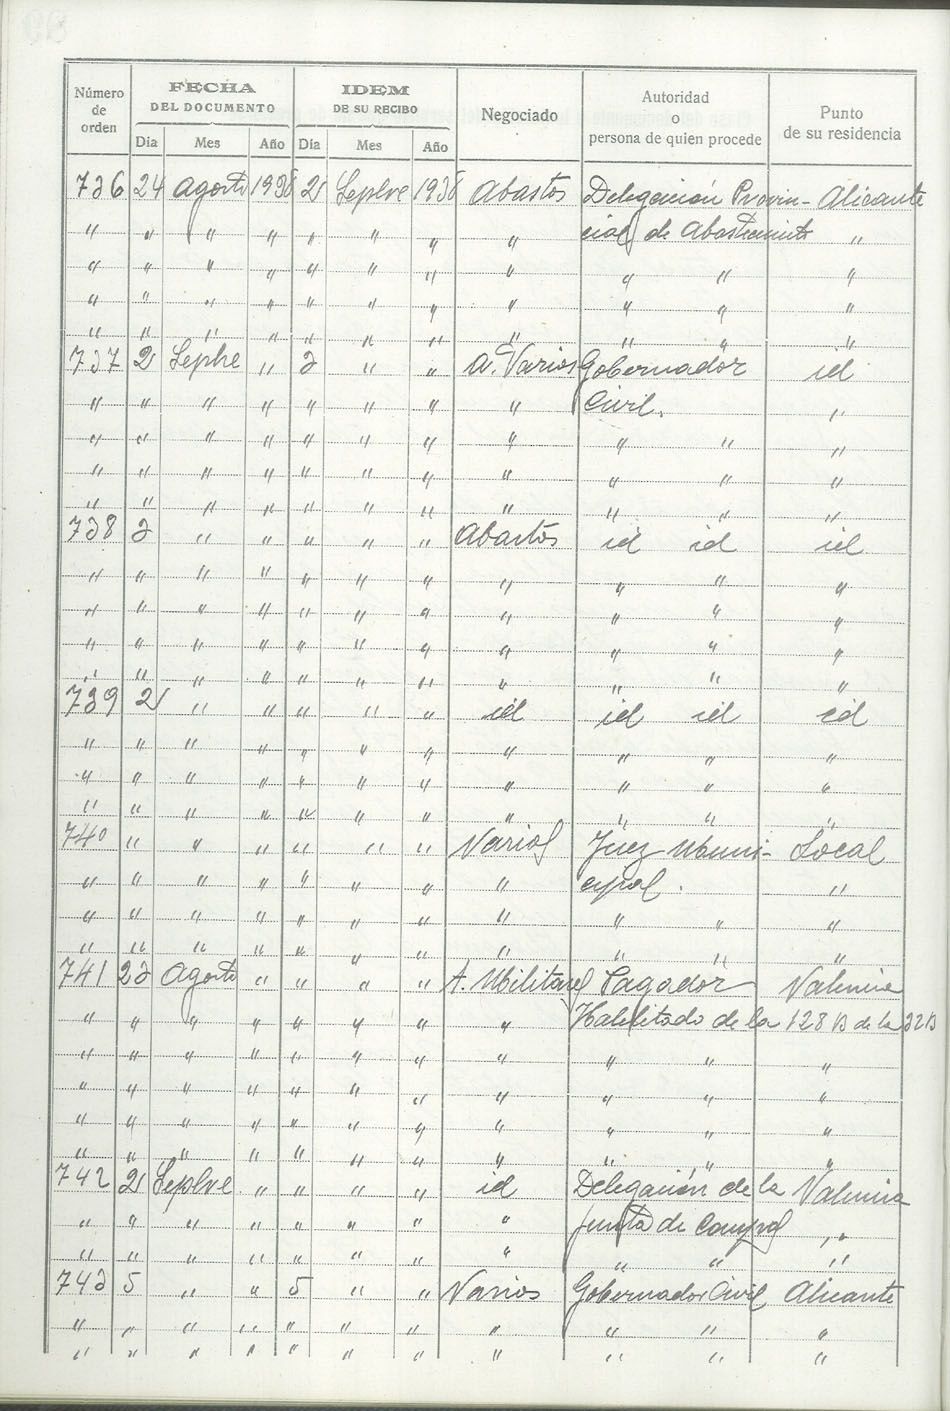 Número de orden | FECHA DEL DOCUMENTO | IDEM DE SU RECIBO | Negociado | Autoridad o persona de quien procede | Punto de su residencia
Día | Mes | Año | Día | Mes | Año
736 24 Agosto 1938 2 Sepbre 1938 Abastos Delegación Provin- Alicante
" " " " " " " " cial de Abastecimto "
" " " " " " " " " " "
" " " " " " " " " " "
" " " " " " " " " " "
737 2 Sepbre " 2 " " A. Varios Gobernador id
" " " " " " " " Civil. "
" " " " " " " " " " "
" " " " " " " " " " "
" " " " " " " " " " "
738 2 " " " " " Abastos id id id
" " " " " " " " " " "
" " " " " " " " " " "
" " " " " " " " " " "
" " " " " " " " " " "
739 2 " " " " " id id id id
" " " " " " " " " " "
" " " " " " " " " " "
" " " " " " " " " " "
740 " " " " " " Varios Juez Muni- Local
" " " " " " " " cipal. "
" " " " " " " " " " "
" " " " " " " " " " "
741 23 Agosto " " " " A. Militares Pagador Valencia
" " " " " " " " Habilitado de la 128 B de la 32 B
" " " " " " " " " " "
" " " " " " " " " " "
" " " " " " " " " " "
" " " " " " " " " " "
742 2 Sepbre " " " " id Delegación de la Valencia
" " " " " " " " junta de Compras "
" " " " " " " " " " "
743 5 " " 5 " " Varios Gobernador Civil Alicante
" " " " " " " " " " "
" " " " " " " " " " "